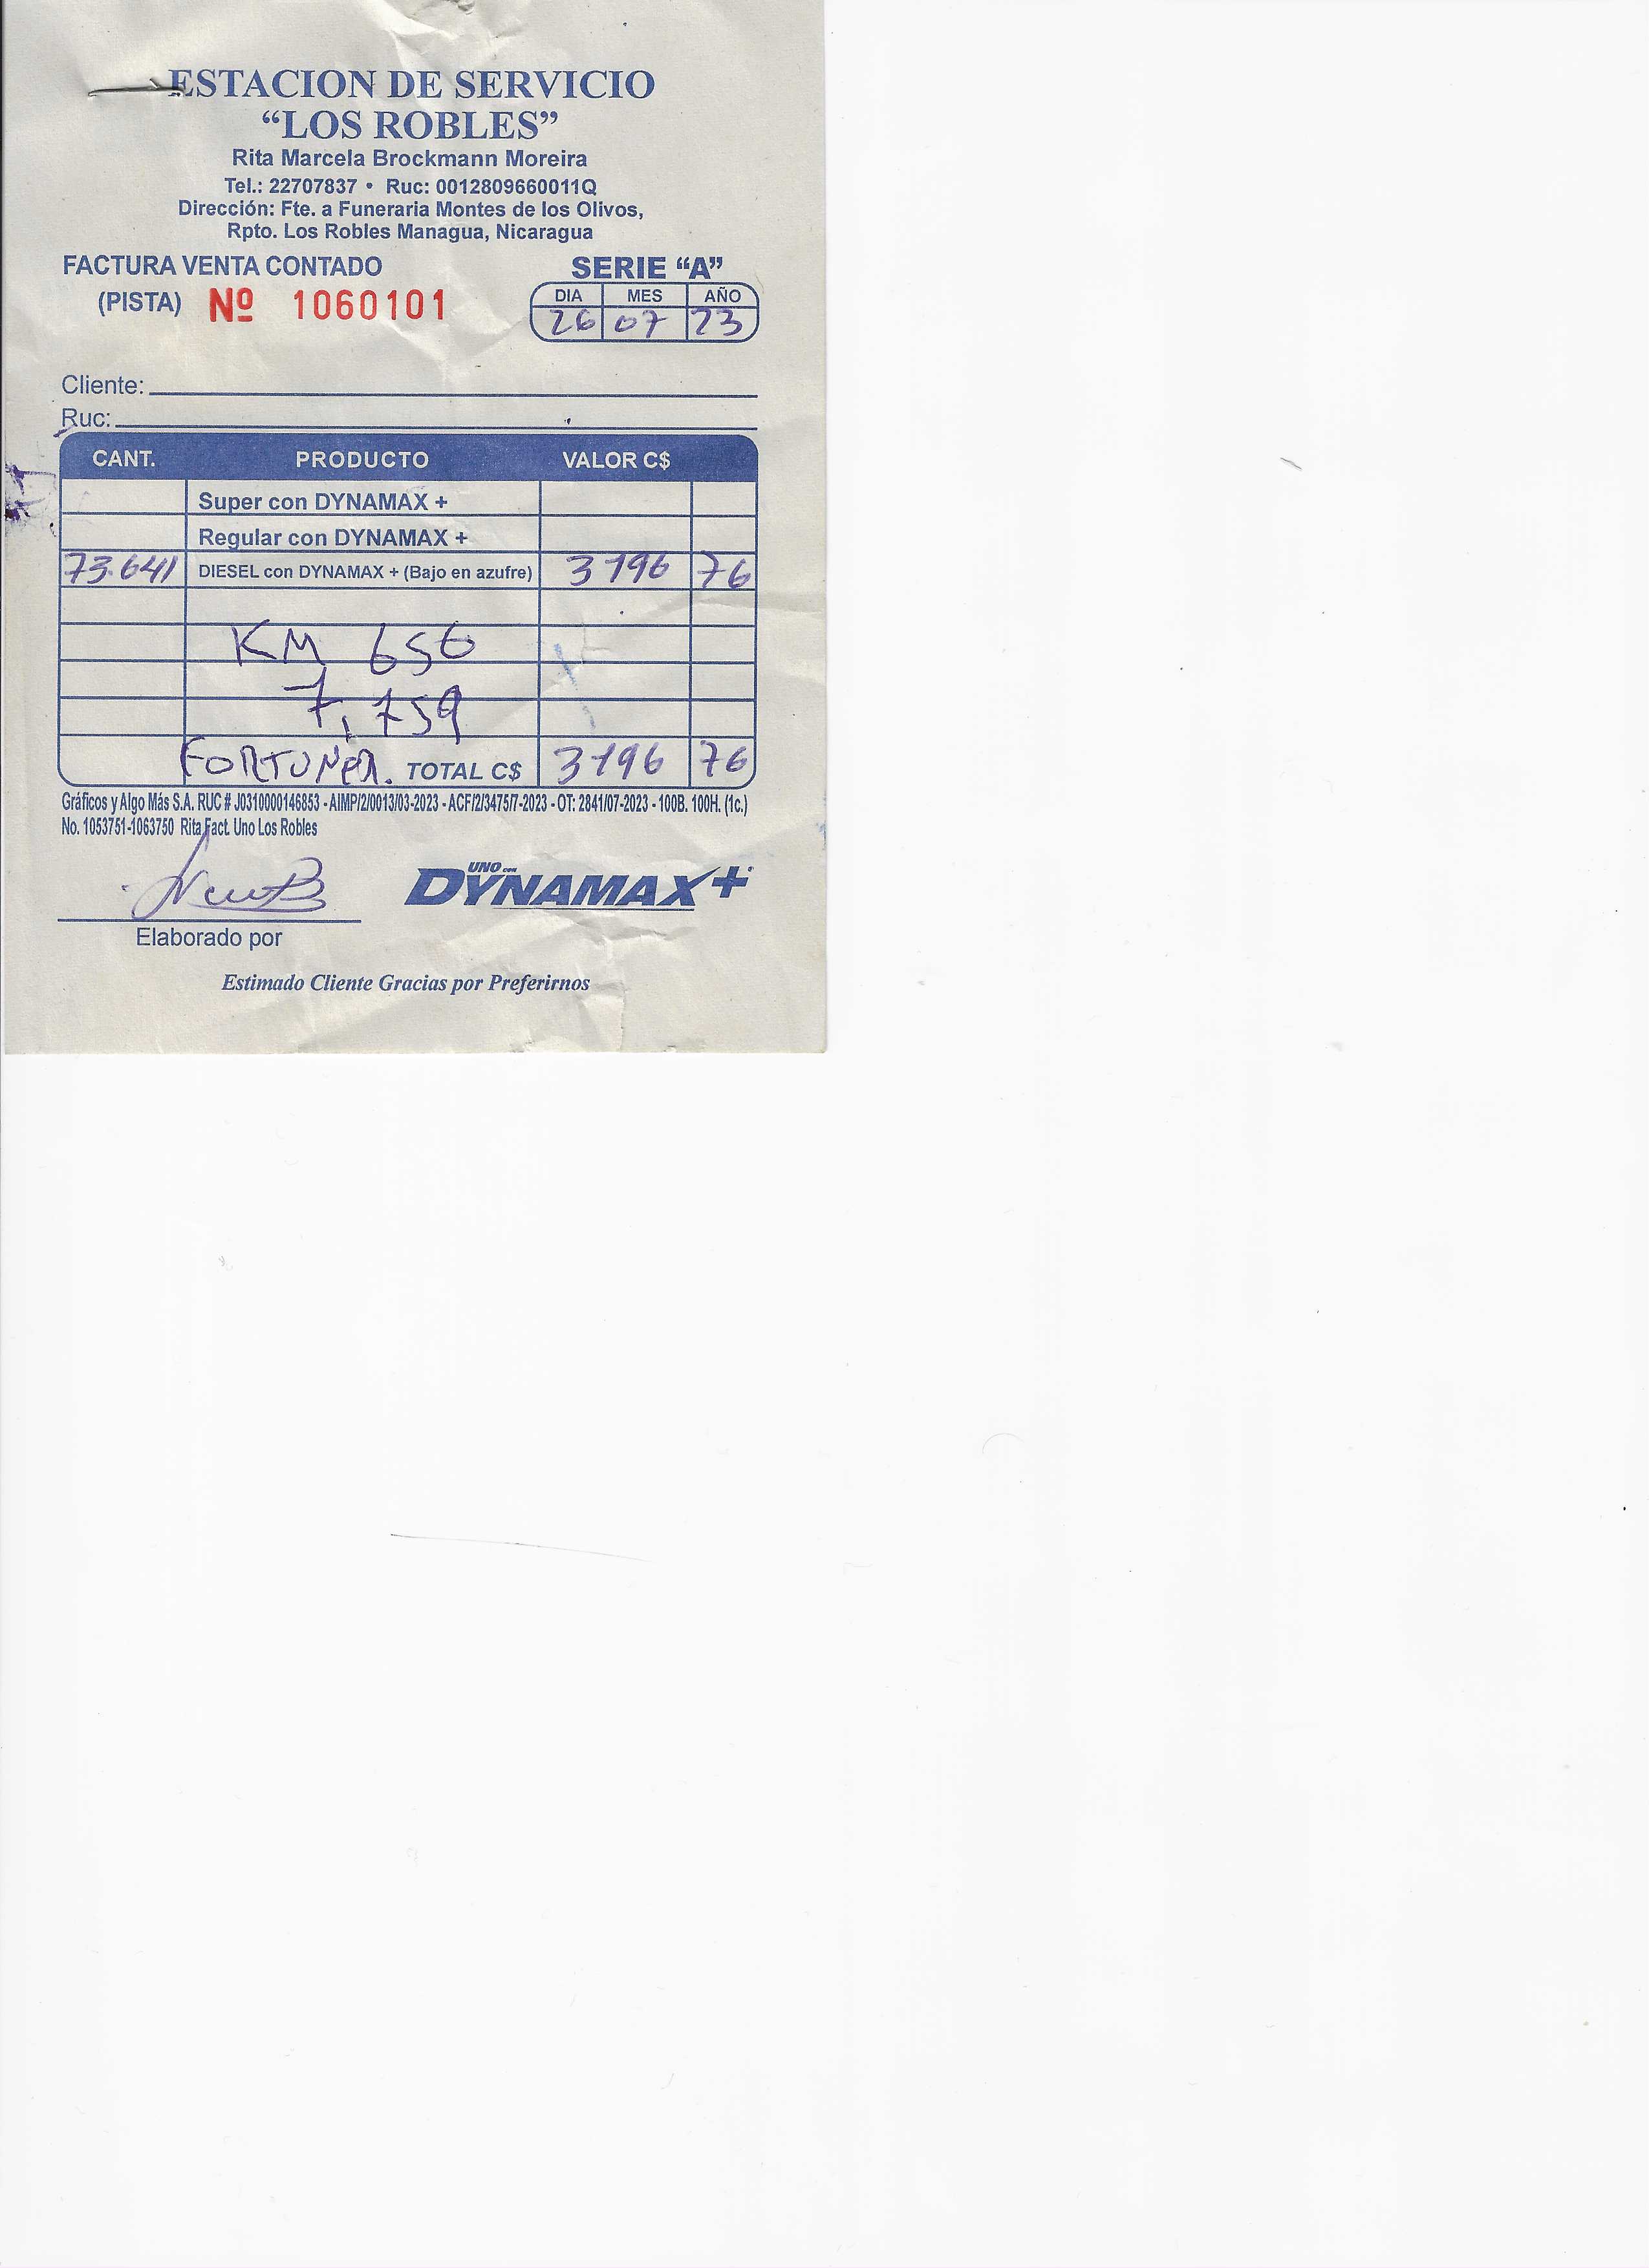 ESTACION DE SERVICIO
“LOS ROBLES”
Rita Marcela Brockmann Moreira
Tel.: 22707837 • Ruc: 0012809660011Q
Dirección: Fte. a Funeraria Montes de los Olivos,
Rpto. Los Robles Managua, Nicaragua
FACTURA VENTA CONTADO
SERIE “A”
(PISTA) Nº 1060101
DIA MES AÑO
26 07 23
Cliente:
Ruc:
CANT. PRODUCTO VALOR C$
Super con DYNAMAX +
Regular con DYNAMAX +
73.641 DIESEL con DYNAMAX + (Bajo en azufre) 3196 76
KM 656
7,759
FORTUNER. TOTAL C$ 3196 76
Gráficos y Algo Más S.A. RUC # J0310000146853 - AIMP/2/0013/03-2023 - ACF/2/3475/7-2023 - OT: 2841/07-2023 - 100B. 100H. (1c.)
No. 1053751-1063750 Rita Fact. Uno Los Robles
UNO con
DYNAMAX+
Elaborado por
Estimado Cliente Gracias por Preferirnos